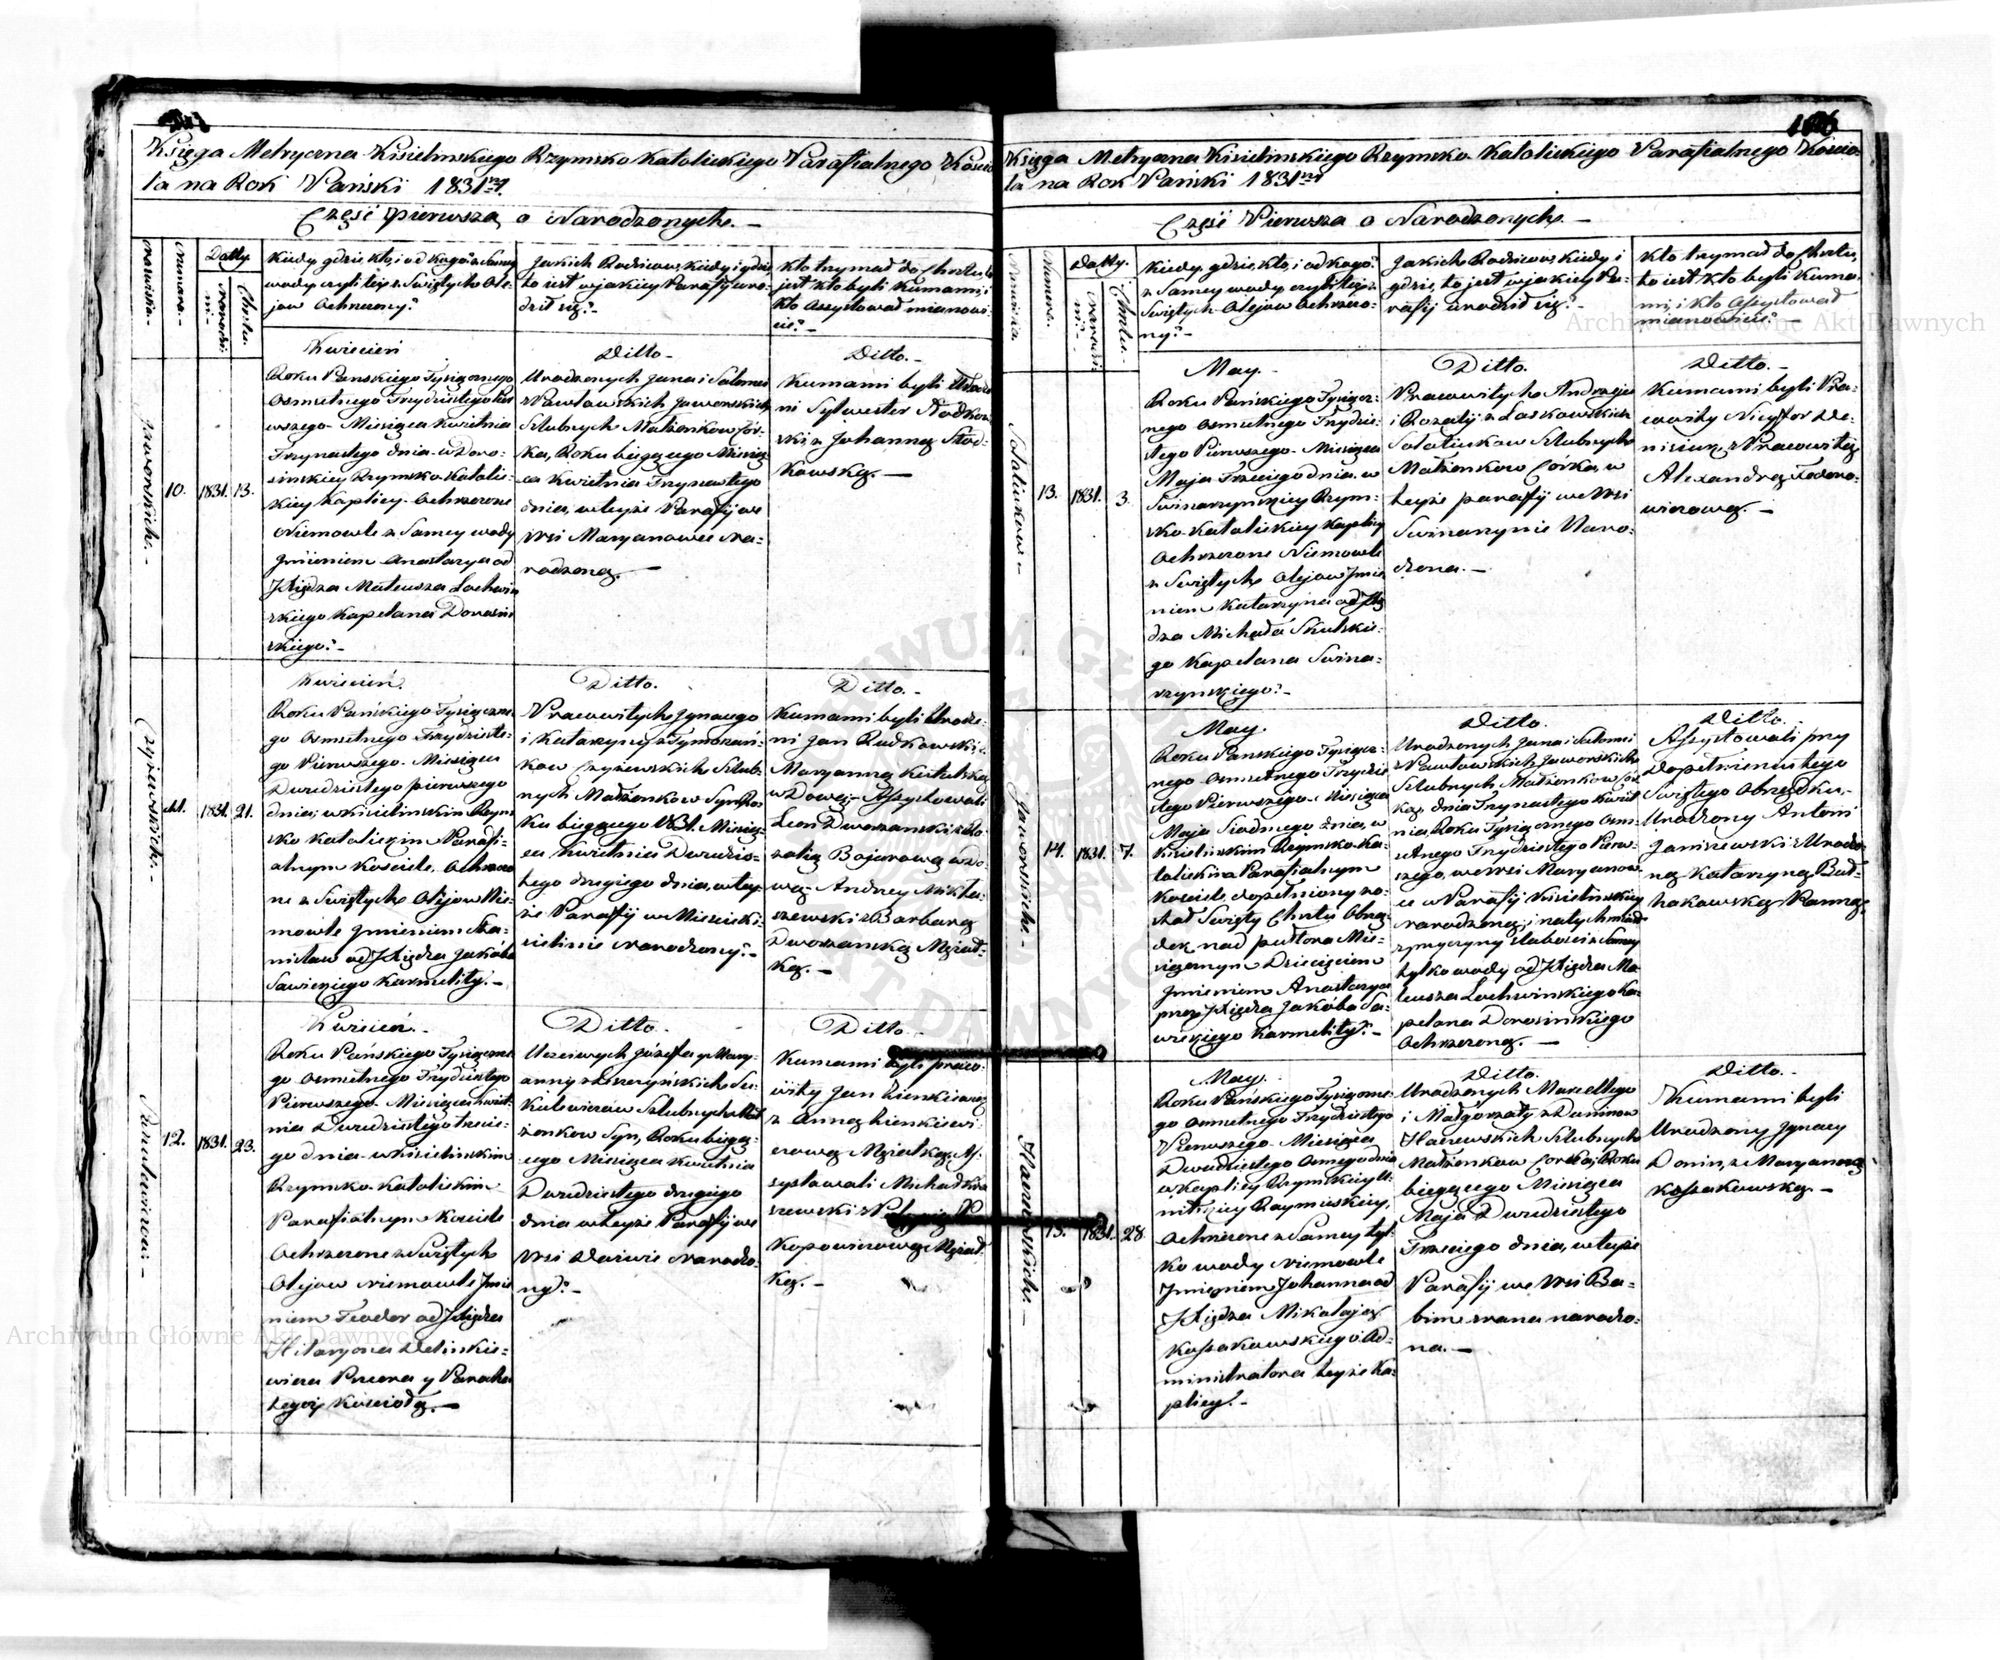 Księga Metryczna Kisielinskiego Rzymsko Katolickiego Parafialnego Kościo
ła na Rok Pański 1831ny.
Część pierwsza o Narodzonych. –
Nazwiska. –
Numera. –
Datty.
Narodzi:
Chrztu.
Kiedy, gdzie, kto, i od kogo? z Samey
wody czyli też z Swiętych Ole-
jow Ochrzcony?
Jakich Rodzicow, kiedy i gdzie
to iest w jakiey Parafij uro-
dził się? –
Kto trzymał do Chrztu, to
jest kto byli Kumami, i
kto assystował mianowi-
cie? –
Jaworskich. –
10.
1831.
13.
Kwiecień
Roku Panskiego Tysiącznego
Osmsetnego Trzydziestego Pier
wszego Miesiąca Kwietnia
Trzynastego dnia w Doro-
sinskiey Rzymsko-Katolic-
kiey Kaplicy Ochrzczone
Niemowle z Samey wody
Jmieniem Anastazya od
Xiędza Mateusza Lachwin
skiego Kapelana Dorosin
skiego? –
Ditto –
Urodzonych Jana i Salomei
z Pawłowskich Jaworskich
Slubnych Małżonkow Cór-
ka, Roku bieżącego Miesią-
ca Kwietnia Trzynastego
dnia, w teyże Parafij we
Wsi Maryanowce na-
rodzona. –
Ditto. –
Kumami byli Urodze
ni Sylwester Rodkow
ski z Johanną
kowską. –
Czyżewskich. –
11.
1831.
21.
Kwiecień.
Roku Pańskiego Tysiączne
go Osmsetnego Trzydzieste-
go Pierwszego Miesiąca
Dwudziestego pierwszego
dnia, w Kisielinskim Rzym
sko Katolickim Parafi-
alnym Kosciele, Ochrzczo
ne z Swiętych Olejow Nie-
mowle Jmieniem Sta-
nisław od Xiędza Jakóba
Sawickiego Karmelity. –
Ditto.
Pracowitych Jgnacego
i Katarzyny z Tymoszań-
kow Czyżewskich Slub-
nych Małżonkow Syn, Ro-
ku bieżącego 1831. Miesią-
ca Kwietnia Dwudzie-
stego drugiego dnia, w tey-
że Parafij w Miescie Ki-
sielinie Narodzony? –
Ditto. –
Kumami byli Urodze-
ni Jan Rudkowski z
Maryanną
wDową – Assystowali
Leon Dworzanski z Ro
zalią Bojarową wDo
wą – Andrey Mikła-
szewski z Barbarą
Dworzanską Mężat-
ką. –
12.
1831.
23.
Kwiecień. –
Roku Pańskiego Tysiączne
go Osmsetnego Trzydziestego
Pierwszego Miesiąca Kwiet-
nia Dwudziestego trzecie-
go dnia w Kisielinskim
Rzymsko-Katolickim
Parafialnym Kosciele
Ochrzczone z Swiętych
Olejow niemowle Jmie
niem Teodor od Xiędza
Hilaryona Delinskie-
wicza Przeora y Parocha
tegoż Kościoła. –
Ditto.
Uczciwych Józefa y Mary-
anny z Leszczyńskich
Slubnych Mał
żonkow Syn, Roku bieżą-
cego Miesiąca Kwietnia
Dwudziestego drugiego
dnia w teyże Parafij we
Wsi narodzo-
ny? –
Ditto –
Kumami byli praco-
wity Jan
z Anną
Mężatką, As-
systowali Michał
szewski z
Mężat
ką. –
106
Księga Metryczna Kisielinskiego Rzymsko-Katolickiego Parafialnego Koscio-
ła na Rok Pański 1831ny
Część Pierwsza o Narodzonych. –
Nazwiska.
Numera.
Datty.
Narodzi:
Chrztu.
Kiedy, gdzie, kto, i od kogo?
z Samey wody, czyli też z
Swiętych Olejow Ochrzco-
ny? –
Jakich Rodzicow, kiedy i
gdzie, to jest w jakiey Pa-
rafij urodził się? –
Kto trzymał do Chrztu,
to iest kto byli Kuma-
mi, i kto assystował
mianowicie? –
Sołatiukow. –
13.
1831.
3.
May. –
Roku Pańskiego Tysiącz-
nego Osmsetnego Trzydzie-
stego Pierwszego Miesiąca
Maja Trzeciego dnia, w
Swinarzynskiey Rzym-
sko-Katolickiey Kaplicy
Ochrzczone Niemowle
z Swiętych Olejow Jmie
niem Katarzyna od Xię
dza Michała Skulskie-
go Kapelana Swina-
rzynskiego? –
Ditto.
Pracowitych Andrzeja
i Rozalij z Laskowskich
Sołatiukow Slubnych
Małżonkow Córka, w
teyże parafij we Wsi
Swinarzynie Naro-
dzona. –
Ditto. –
Kumami byli Pra-
cowity Nicyfor De-
nisiuk, z Pracowitą
Alexandrą Fedoro-
wiczową. –
Jaworskich. –
14.
1831.
7.
May.
Roku Panskiego Tysiącz-
nego Osmsetnego Trzydzie
stego Pierwszego Miesiąca
Maja Siodmego dnia, w
Kisielinskim Rzymsko-Ka-
tolickim Parafialnym
Kosciele, dopełniony zo-
stał Swięty Chrztu Obrzą-
dek nad półtora Mie-
sięcznym Dziecięciem
Jmieniem Anastazya
przez Xiędza Jakóba Sa-
wickiego Karmelity? –
Ditto.
Urodzonych Jana i Salomei
z Pawłowskich Jaworskich
Slubnych Małżonkow Cór
ka, dnia Trzynastego Kwiet
nia, Roku Tysiącznego Osm-
setnego Trzydziestego Pierw-
szego, we Wsi Maryanow-
ce w Parafij Kisielinskiey
narodzona, i natychmiast
z przyczyny słabości z Samey
tylko wody od Xiędza Ma-
teusza Lachwinskiego Ka-
pelana Dorosinskiego
Ochrzczona. –
Ditto.
Assystowali przy
Dopełnieniu tego
Swiętego Obrządku –
Urodzony Antoni
Janiszewski z Urodzo
ną Katarzyną
Panną.
15.
1831.
28
May.
Roku Pańskiego Tysiączne-
go Osmsetnego Trzydziestego
Pierwszego Miesiąca
Dwudziestego Osmego dnia
w Kaplicy Rzymskiey U-
nitskiey Raymieskiey,
Ochrzczone z Samey tyl-
ko wody Niemowle
Jmieniem Johanna od
Xiędza Mikołaja
Kossakowskiego Ad-
ministratora teyże Ka-
plicy? –
Ditto.
Urodzonych Marcellego
i Małgorzaty z Daninow
Slubnych
Małżonkow Corka, Roku
bieżącego Miesiąca
Maja Dwudziestego
Trzeciego dnia, w teyże
Parafij we Wsi Ba-
bim zrana narodzo-
na. –
Ditto. –
Kumami byli
Urodzony Jgnacy
Donin, z Maryanną
Kossakowską. –
Archiwum Główne Akt Dawnych
Archiwum Główne Akt Dawnych